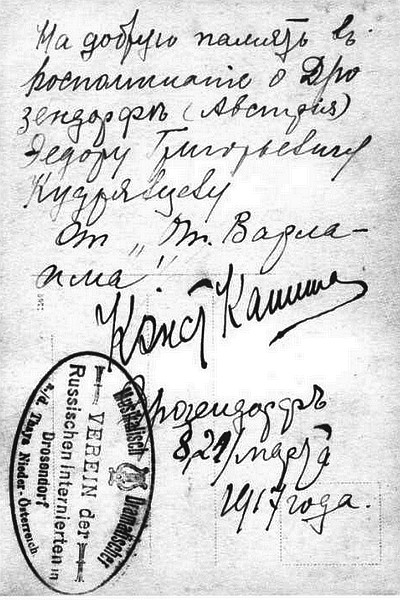 На добрую память въ
воспоминанiе о Дро-
зендорфѣ (Австрiя)
Федору Григорьевичу
Кудрявцеву
От „Пт. Варла-
има"!
Конст Капши
Дрозендорфъ
8/21 марта
1917 года.
Musikalisch Dramatischer
VEREIN der
Russischen Internierten in
Drosendorf
a/d. Thaya Nieder-Österreich.